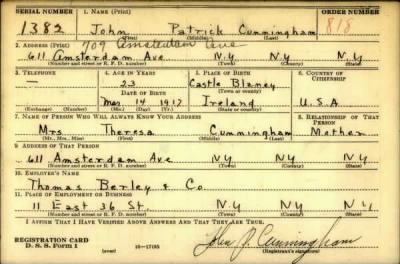 SERIAL NUMBER 1. NAME (Print) ORDER NUMBER
1382 John Patrick Cunningham 818
(First) (Middle) (Last)
2. ADDRESS (Print) 709 Amsterdam Ave
611 Amsterdam Ave N.Y N.Y N.Y
(Number and street or R. F. D. number) (Town) (County) (State)
3. TELEPHONE 4. AGE IN YEARS 5. PLACE OF BIRTH 6. COUNTRY OF CITIZENSHIP
— 23 Castle Blaney
DATE OF BIRTH (Town or county)
Mar. 14 1917 Ireland U.S.A
(Exchange) (Number) (Mo.) (Day) (Yr.) (State or country)
7. NAME OF PERSON WHO WILL ALWAYS KNOW YOUR ADDRESS 8. RELATIONSHIP OF THAT PERSON
Mrs Theresa Cunningham Mother
(Mr., Mrs., Miss) (First) (Middle) (Last)
9. ADDRESS OF THAT PERSON
611 Amsterdam Ave N.Y N.Y N.Y
(Number and street or R. F. D. number) (Town) (County) (State)
10. EMPLOYER'S NAME
Thomas Berley & Co.
11. PLACE OF EMPLOYMENT OR BUSINESS
11 East 36 St. N.Y N.Y N.Y
(Number and street or R. F. D. number) (Town) (County) (State)
I AFFIRM THAT I HAVE VERIFIED ABOVE ANSWERS AND THAT THEY ARE TRUE.
REGISTRATION CARD
D. S. S. Form 1 16—17105 John P. Cunningham
(Registrant's signature)